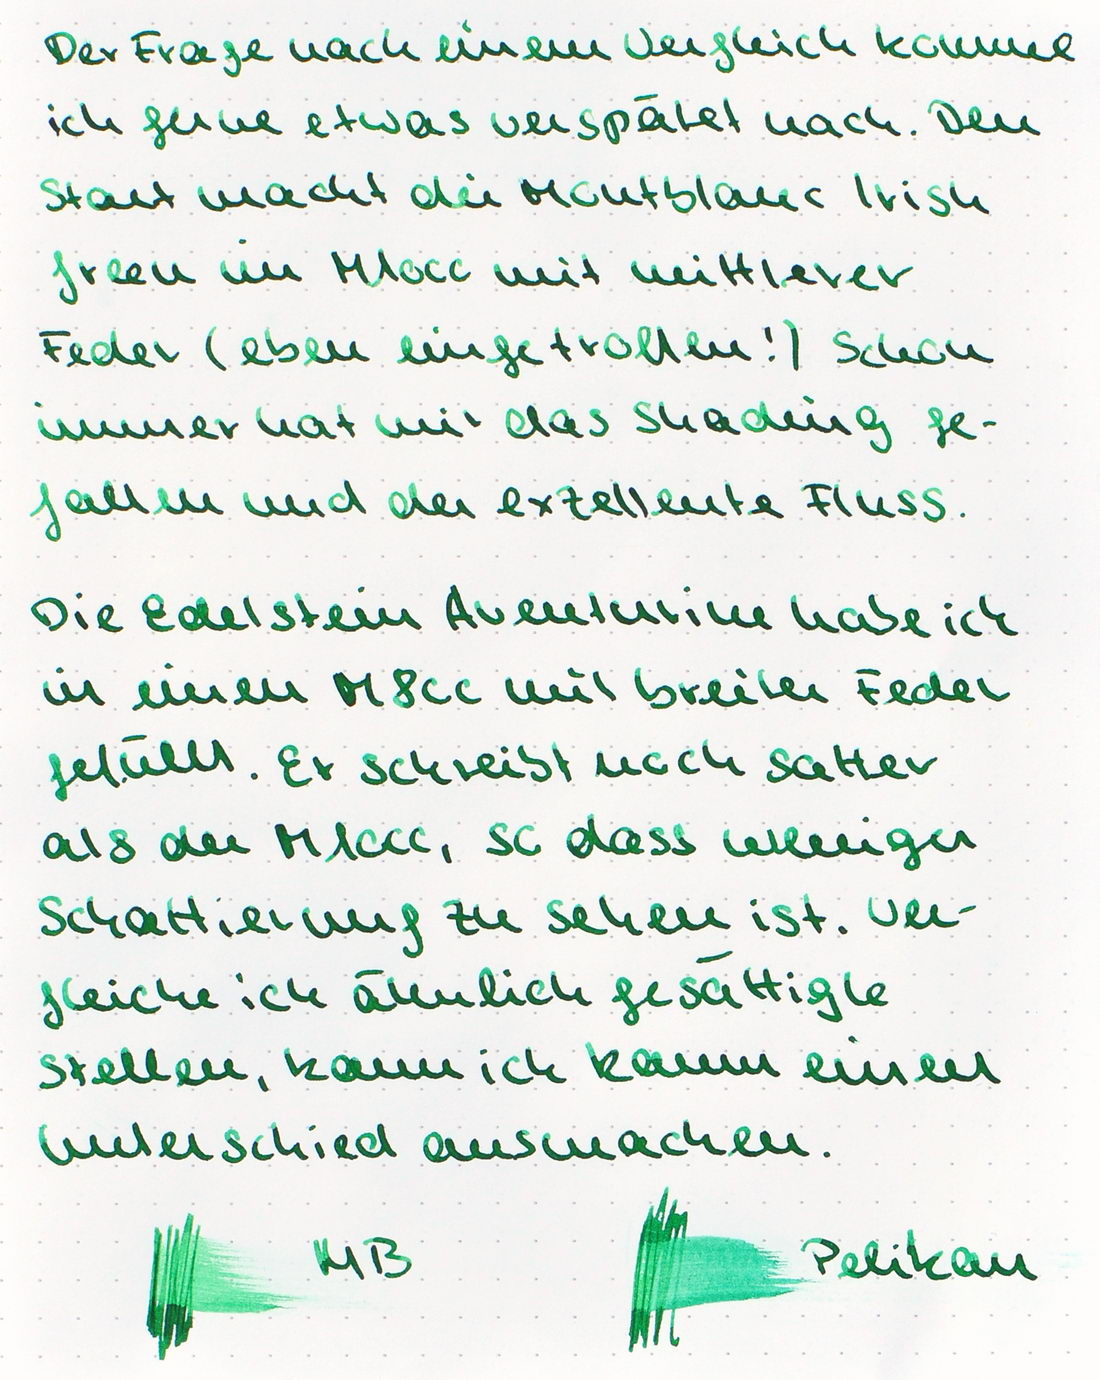 Der Frage nach einem Vergleich komme
ich gerne etwas verspätet nach. Den
Start macht die Montblanc Irish
green im M1000 mit mittlerer
Feder (eben eingetroffen!) Schon
immer hat mir das Shading ge-
fallen und der exzellente Fluss.
Die Edelstein Aventurine habe ich
in einen M800 mit breiter Feder
gefüllt. Er schreibt noch satter
als der M1000, so dass weniger
Schattierung zu sehen ist. Ver-
gleiche ich ähnlich gesättigte
Stellen, kann ich kaum einen
Unterschied ausmachen.
MB Pelikan